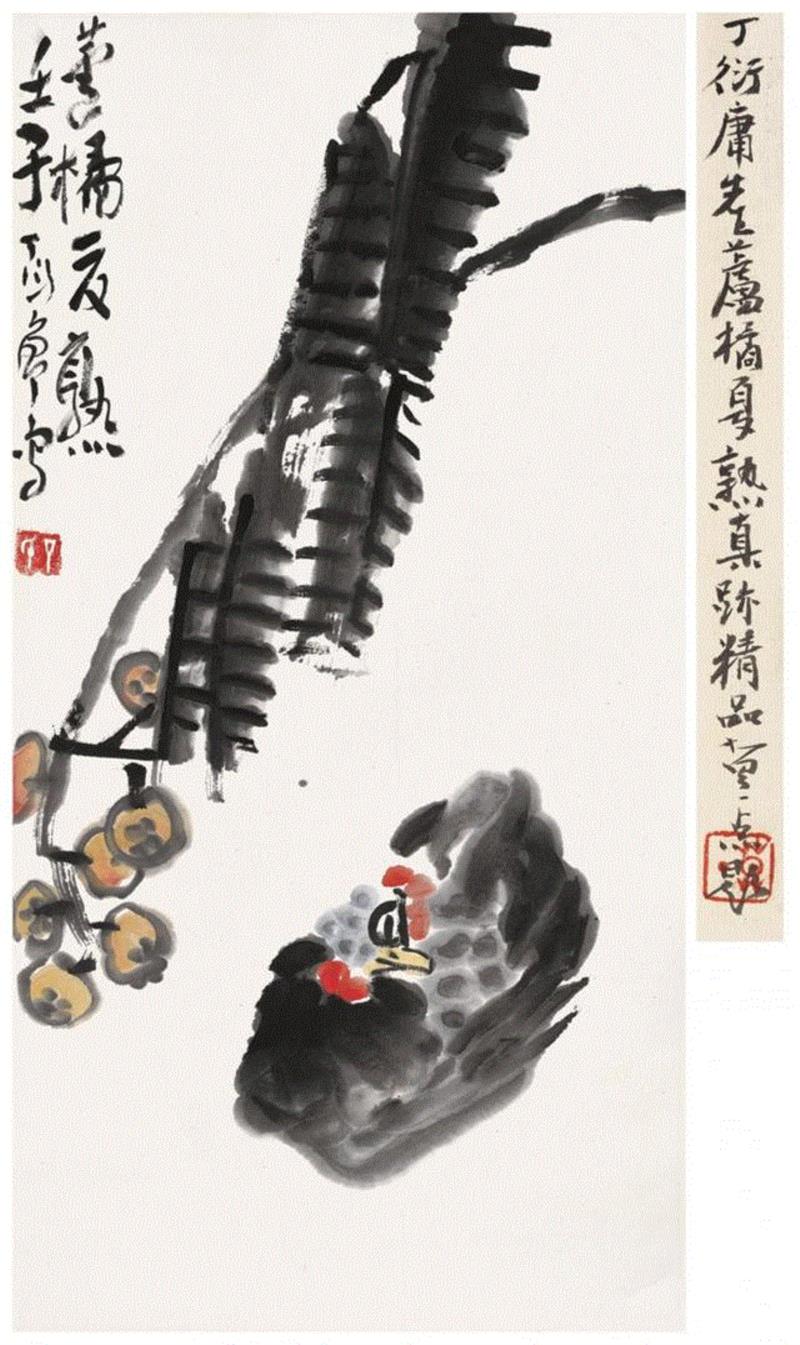 丁衍庸先生蘆橘夏熟真跡精品
蘆橘夏熟
壬子丁衍庸寫